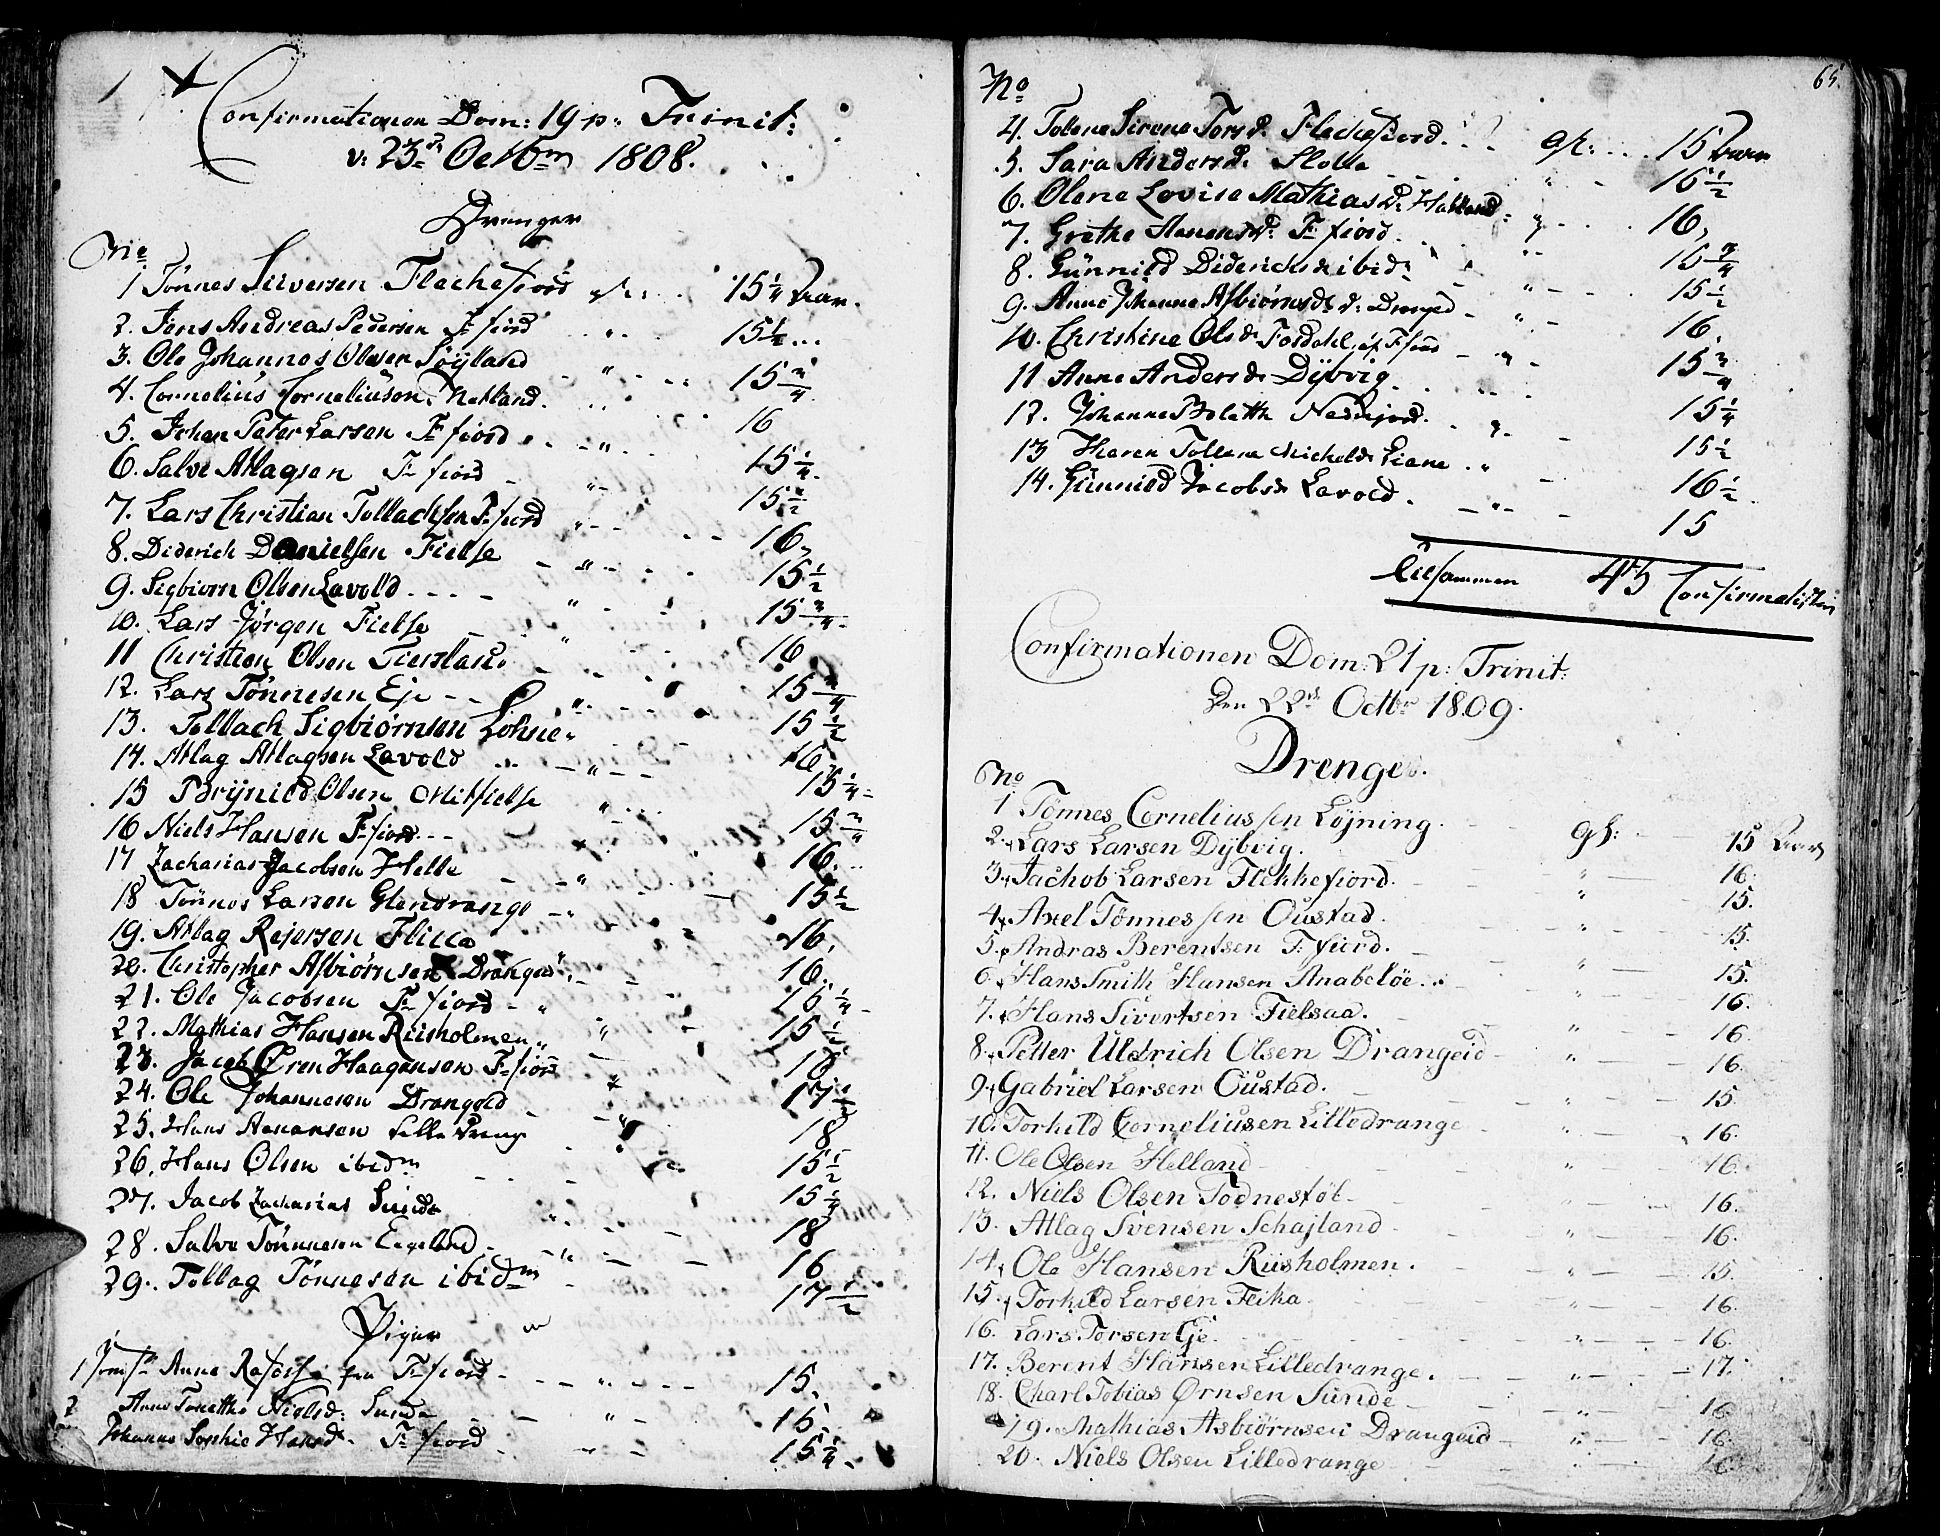 Confirmationen Dom: 19 p. Trinit:
d. 23de Octbr 1808.
Drenger
No
1 Tönnes Siversen Fleckefiord gl: 15 1/4 Aar.
2. Jens Andreas Pedersen F-fiord " 15 1/2
3. Ole Johannes Olsen Söyland " 15 3/4
4. Cornelius Corneliusen Netland. " 16
5. Johan Peter Larsen F-fiord " 15 1/4
6. Salve Atlagsen F-fiord " 15 1/2
7. Lars Christian Tollachsen F-fiord " 16
8. Diderich Danielsen Fielse " 15 1/2
9. Sigbiorn Olsen Lavold " 15 3/4
10. Lars Jörgen Fielse " 16
11 Christian Olsen " 15 3/4
12. Lars Tönnesen Eje " 15 1/2
13. Tollach Sigbiörnsen Löhne 16
14. Atlag Atlagsen Lavold " 15 1/4
15 Brynild Olsen Mitfielse " 15 3/4
16 Niels Hansen F-fiord 16
17 Zacharias Jacobsen Helle " 15 1/2
18 Tönnes Larsen Glendrange " 16
19. Atlag Rejersen Flicca " 16
20. Christopher Asbiörnsen Drangeid " 15 1/4
21. Ole Jacobsen F-fiord " 15 1/2
22. Mathias Hansen Riisholmen " 16
23. Jacob Ören Haagensen F-fiord 17 1/2
24. Ole Johannesen Drangeid 18
25. Hans Lille Drang 15 1/2
26. Hans Olsen ibidm 15 1/4
27. Jacob Zacharias Sunde " 18
28. Salve Tönnesen Eegeland " 16
29. Tollag Tönnesen ibidm 17 1/2
Piger
1 Anne fra F-fiord " 15
2 Anne Tonette Nielsd: Sunde " 15
Johanne Sophie Hansd. F-fiord " 15 1/4
65.
No
4. Tolene Sirene Torsd. Fleckefiord. gl: 15 Aar
5. Sara Andersd. Stolle " 15 1/2
6. Olene Lovise Mathiasd. " 16
7. Grethe Hansensd: F-fiord " 15 3/4
8. Günnild Diderichsd ibid: " 15 1/2
9. Anne Johanne Asbiörnsd. Drangeid " 16
10. Christine Olsd. " 15 3/4
11 Anne Andersd. Dybvig. " 15 1/4
12. Johanne Bolette " 15 1/2
13 Haren Tollene Michelsd. Liane " 16 1/2
14. Günnild Jacobsd. Lavold. " 15
Tilsammen 43 Confirmatister
Confirmationen Dom: 21 p: Trinit:
Den 22de Octbr 1809.
Drenge.
No
1 Tönnes Corneliussen Löjning. gl: 15 Aar
2. Lars Larsen Dybvig. 16.
3. Jachob Larsen Flekkefiord. " 15.
4. Axel Tönnessen Oustad. " 15.
5. Andras Berentsen F. fiord. " 15.
6. Hans Smith Hansen Anabelöe. " 16.
7. Hans Sivertsen Fielsaa. " 16.
8. Petter Uldrich Olsen Drangeid " 16.
9. Gabriel Larsen Oustad. " 15.
10. Torkild Corneliusen Lilledrange " 16.
11. Ole Olsen Helland " 16.
12. Niels Olsen Todnestöl 16.
13. Atlag Svensen Schajland " 16.
14. Ole Hansen Riisholmen. " 15.
15. Torkild Larsen Feika " 16.
16. Lars Torsen Eje. " 16.
17. Berent Hansen Lilledrange. " 17.
18. Charl Tobias Örnsen Sunde " 16.
19. Mathias Asbiörnsen Drangeid " 16.
20. Niels Olsen Lilledrange 16.